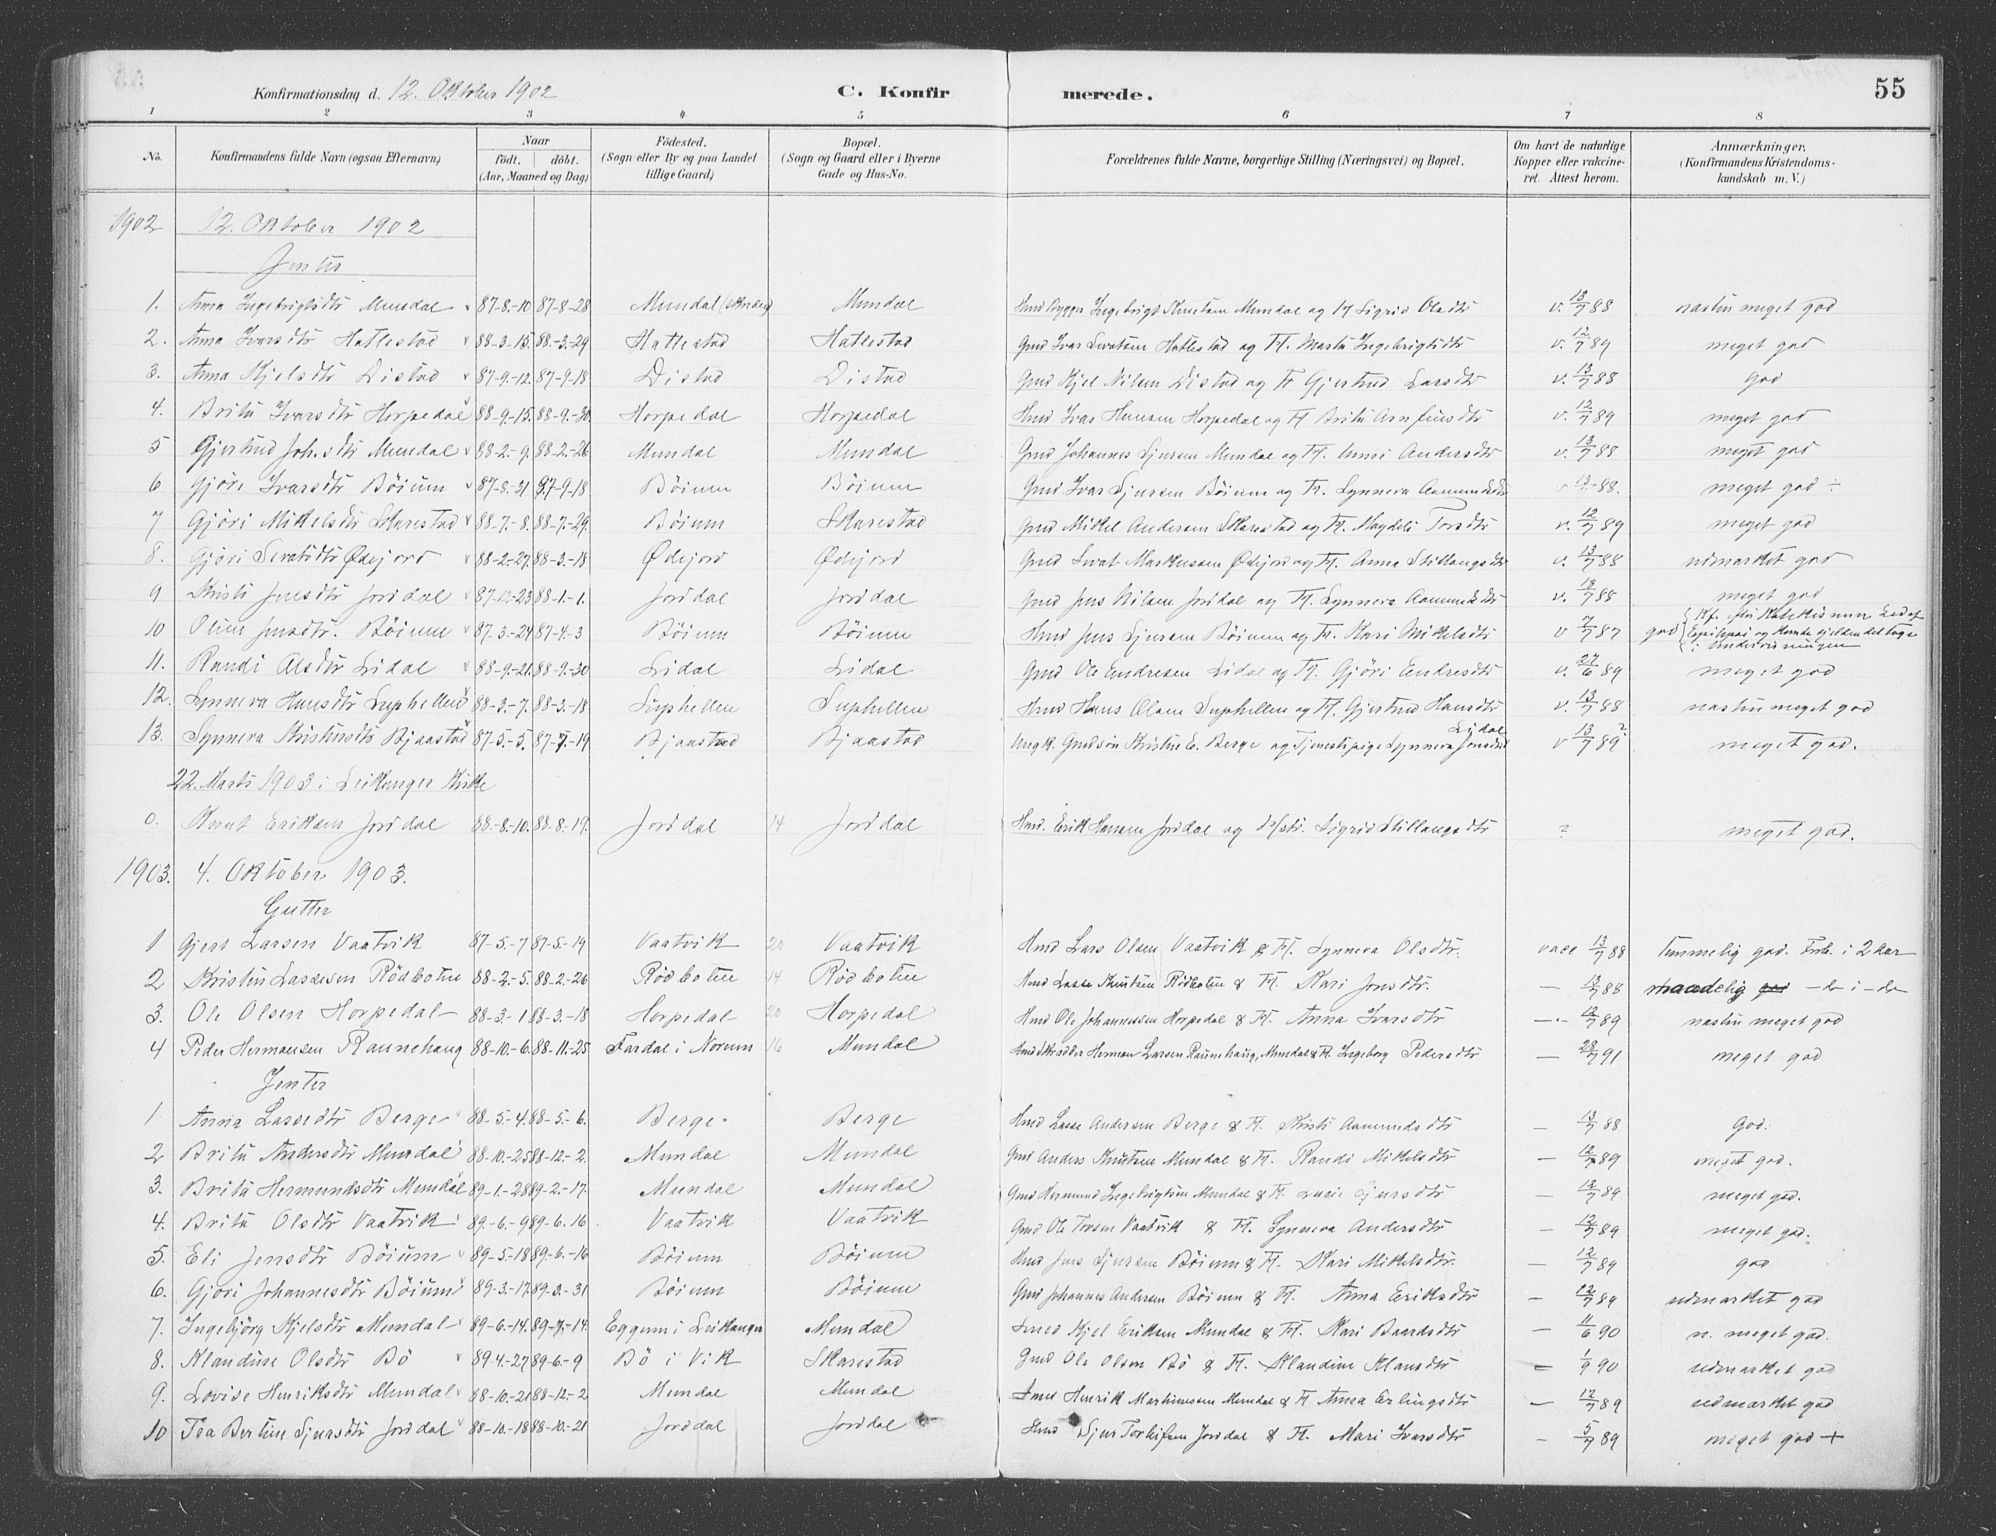 Konfirmationsdag d. 12. Oktober 1902 C. Konfirmerede. 55
1 2 3 4 5 6 7 8
No. Konfirmandens fulde Navn (ogsaa Efternavn) Naar födt. döbt. (Aar, Maaned og Dag) Födested. (Sogn eller By og paa Landet tillige Gaard) Bopæl. (Sogn og Gaard eller i Byerne Gade og Hus-No. Forældrenes fulde Navne, borgerlige Stilling (Næringsvei) og Bopæl. Om havt de naturlige Kopper eller vakcineret. Attest herom. Anmærkninger. (Konfirmandens Kristendomskundskab m. V.)
1902 12. Oktober 1902
Jenter
1. Anna Ingebrigtsdtr Mundal 87-8-10 87-8-28 Mundal Mundal Ingebrigt Knutsen Mundal og H Sigrid Olsdtr v. 13/7 88 næsten meget god
2. Anna Ivarsdtr Hatlestad 88-3-15. 88-3-29 Hatlestad Hatlestad Gmd Ivar Sevatsen Hatlestad og H. Marta Ingebrigtsdtr v. 12/7 89 meget god
3. Anna Kjelsdtr Distad 87-9-12. 87-9-18 Distad Distad Gmd Kjel Nilsen Distad og H Gjertrud Larsdtr v. 13/7 88 god
4. Brita Ivarsdtr Horpedal 88-9-15. 88-9-30 Horpedal Horpedal Hmd Ivar Hansen Horpedal og H Brita Arnfinsdtr v. 12/7 89 meget god
5 Gjertrud Joh.sdtr Mundal 88-2-9. 88-2-26 Mundal Mundal Gmd Johannes Sjursen Mundal og H. Anni Andersdtr v. 13/7 88 meget god
6 Gjöri Ivarsdtr Böium 87-8-21 87-9-18 Böium Böium Gmd Ivar Sjursen Böium og H. Synneva Aamundsdtr v 13/7 88. meget god ÷
7 Gjöri Mikelsdtr Skarestad 88-7-8. 88-7-29. Böium Skarestad Gmd Mikel Andersen Skarestad og H. Magdeli Torsdtr v. 12/7 89 meget god
8. Gjöri Sevatsdtr Ødejord 88-2-27. 88-3-18 Ødejord Ødejord Gmd Sevat Markussen Ødejord og H. Anna Stillaugsdtr v. 13/7 88 udmærket god
9 Kristi Jensdtr Jordal 87-12-23 88-1-1. Jordal Jordal Gmd Jens Nilsen Jordal og H. Synneva Aamundsdtr v. 13/7 88 meget god
10 Oline Jensdtr. Böium 87-3-24 87-4-3 Böium Böium Hmd Jens Sjursen Böium og H. Kari Mikelsdtr v 7/7 87 god
11. Randi Olsdtr Lidal 88-9-21. 88-9-30 Lidal Lidal Gmd Ole Endresen Lidal og H. Gjöri Endresdtr v. 27/6 89 meget god
12. Synneva Hansdtr Suphellen 88-3-7. 88-3-18 Suphellen Suphellen Hmd Hans Olsen Suphellen og H. Gjertrud Hansdtr v. 13/7 88 næsten meget god
13. Synneva Kristensdtr Bjaastad 87-5-5. 87-7-19 Bjaastad Bjaastad Ungk. Gmdsön Kristen E. Berge og Tjenestepige Synneva Jensdtr Lidal v 13/7 89 ? meget god.
22. Marts 1903 i Leikanger Kirke
0. Knut Eriksen Jordal 88-8-10. 88-8-19. Jordal 14 Jordal Hmd. Erik Hansen Jordal og Sigrid Stillaugsdtr ? meget god.
1903. 4. Oktober 1903.
Gutter
1 Gjert Larsen Vaatvik 87-5-7 87-5-19 Vaatvik 20 Vaatvik Hmd Lars Olsen Vaatvik & H. Synneva Olsdtr. vacc 13/7 88 Temmelig god. Frb. i 2 Aar
2 Kristen Lassesen Rödbotn 88-2-5. 88-2-26 Rödbotn 14 Rödbotn Hmd Lasse Knutsen Rödbotn & H. Kari Jonsdtr. — 13/7 88 maadelig god —do i —do
3. Ole Olsen Horpedal 88-3-1 88-3-18 Horpedal 20 Horpedal Hmd Ole Johannessen Horpedal & H. Anna Ivarsdtr — 12/7 89 næsten meget god
4 Peder Hermansen Raunehaug 88-10-6. 88-11-25 Fardal i Norum 16 Mundal Herman Larsen Raunehaug, Mundal & H. Ingeborg Pedersdtr — 28/7 91 meget god
Jenter
1 Anna Lassedtr Berge 88-5-4. 88-5-6. Berge Berge Hmd Lasse Andersen Berge & H. Kristi Aamundsdtr — 13/7 88 God.
2 Brita Andersdtr Mundal 88-10-25 88-12-2. Mundal Mundal Gmd Anders Knutsen Mundal & H. Randi Mikelsdtr — 12/7 89 meget god.
3. Brita Hermundsdtr Mundal 89-1-28 89-2-17. Mundal Mundal Gmd Hermund Ingebrigtsen Mundal & H. Sjursdtr — 12/7 89 meget god.
4. Brita Olsdtr Vaatvik 89-6-9 89-6-16 Vaatvik Vaatvik Gmd Ole Vaatvik & H. Synneva Andersdtr — 12/7 89 meget god.
5. Eli Jensdtr Böium 89-5-18 89-6-16 Böium Böium Hmd Jens Sjursen Böium & H. Kari Mikelsdtr. — 12/7 89 god
6. Gjöri Johannesdtr Böium 89-3-17. 89-3-31 Böium Böium Gmd Johannes Andersen Böium & H. Anna Eriksdtr — 12/7 89 udmærket god
7. Ingebjörg Kjelsdtr Mundal 89-6-14. 89-7-14. Eggum i Leikanger Mundal Kjel Eriksen Mundal & H. Kari Baardsdtr — 11/6 90 n. meget god.
8. Klaudine Olsdtr Bö 89-4-27 89-6-9 Bö i Vik Skarestad Gmd Ole Olsen Bö & H. Klaudine Klausdtr — 1/9 90 udmærket god
9. Lovise Henriksdtr Mundal 88-10-21 88-12-2 Mundal Mundal Henrik Markussen Mundal & H Anna Erlingsdtr — 12/7 89 udmærket god
10 Tea Bertine Sjursdtr Jordal 88-10-18 88-10-21 Jordal Jordal Hmd Sjur Torleifsen Jordal & H. Mari Ivarsdtr — 5/7 89 meget god +